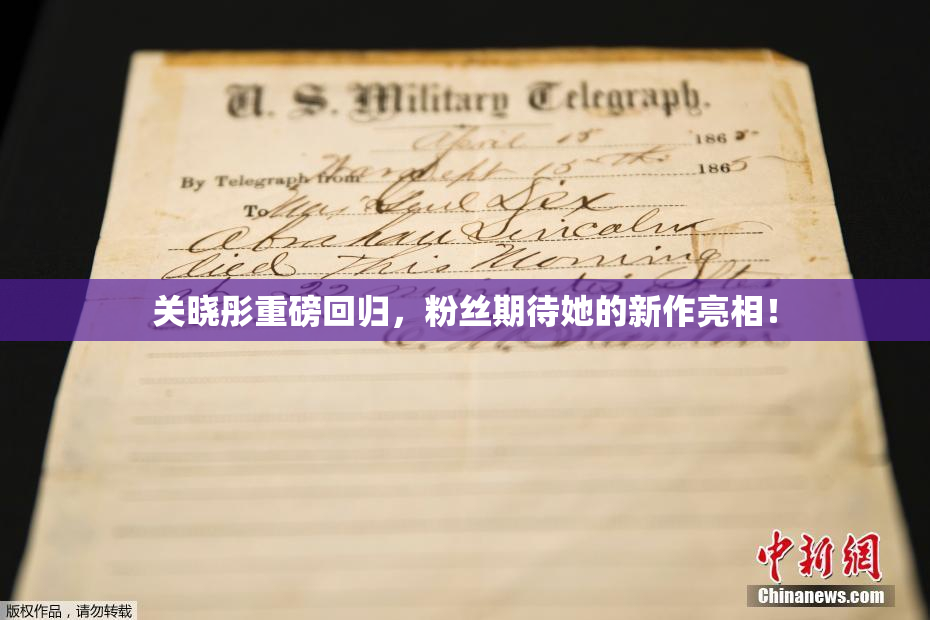 U. S. Military Telegraph.
April 15 1865
By Telegraph from War Dept 15th 1865
To Maj Genl Dix
Abraham Lincoln
died This Morning
at 22 minutes after
关晓彤重磅回归，粉丝期待她的新作亮相！
E. M. Stanton
中新網
Chinanews.com
版权作品，请勿转载